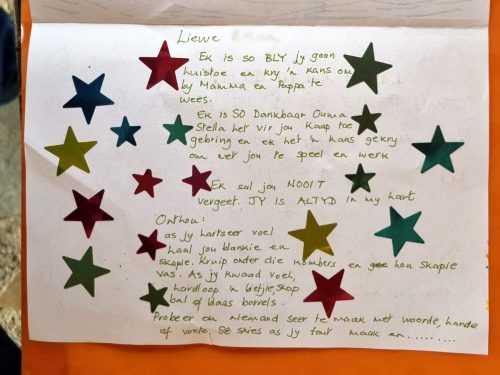 Liewe
Ek is so BLY jy gaan
huistoe en kry 'n kans om
by Mamma en Pappa te
wees.
Ek is SO Dankbaar Ouma
Stella het vir jou Kaap toe
gebring en ek het 'n kans gekry
om met jou te speel en werk
Ek sal jou NOOIT
vergeet. JY IS ALTYD in my hart
Onthou:
as jy hartseer voel
haal jou blankie en
skapie. Kruip onder die kombers en hou skapie
vas. As jy kwaad voel,
hardloop 'n bietjie, skop
bal of blaas borrels.
Probeer om niemand seer te maak met woorde, hande
of voete. Sê skies as jy fout maak en........